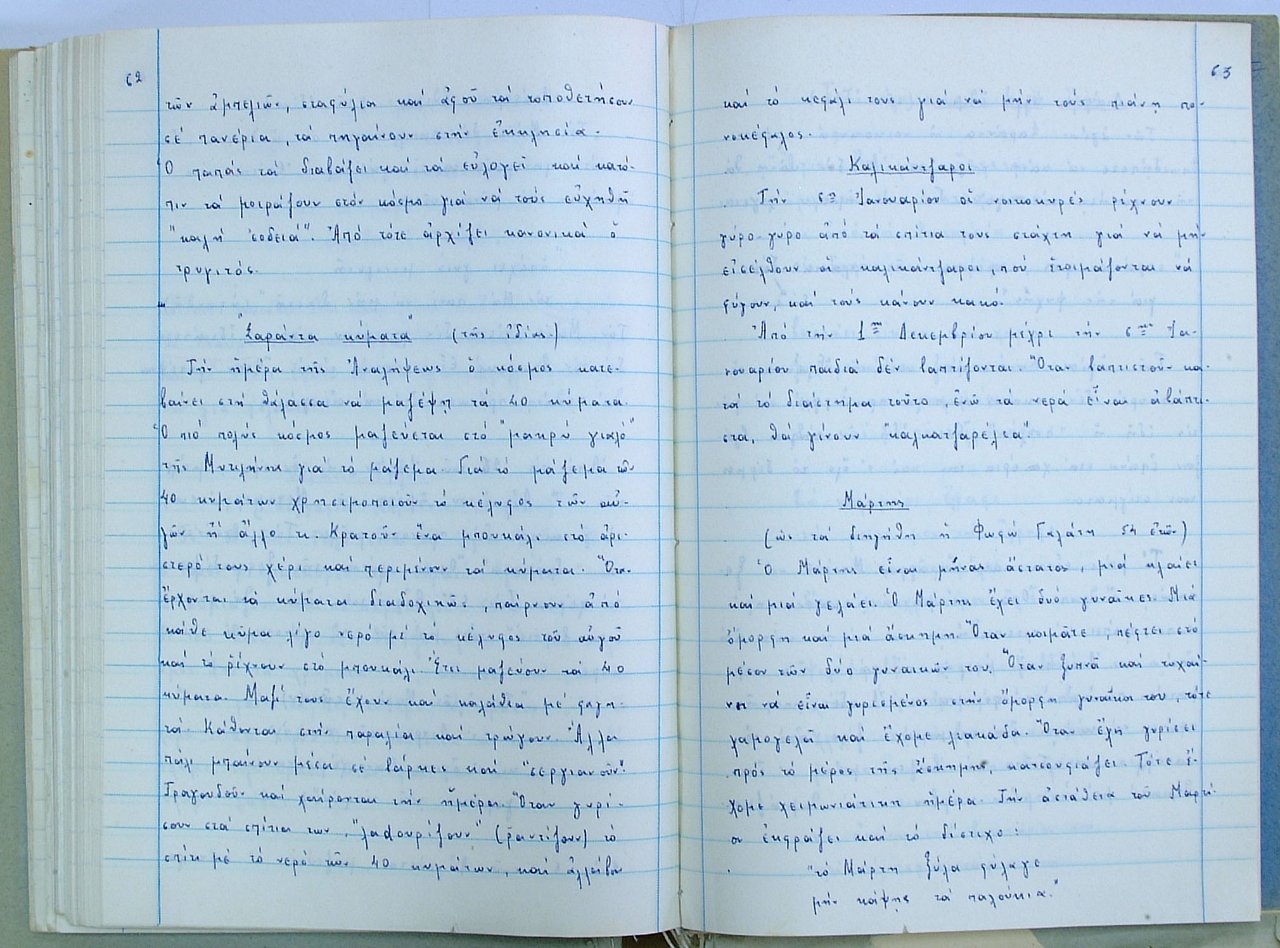 62
τῶν ἀμπελιῶν, σταφύλια καί ἀφοῦ τά τοποθετήσουν
σέ πανέρια, τά πηγαίνουν στήν ἐκκλησία.
Ὁ παπάς τά διαβάζει καί τά εὐλογεῖ καί κατό-
πιν τά μοιράζουν στόν κόσμο γιά νά τούς εὐχηθῆ
"καλή ἐσοδειά". Ἀπό τότε ἀρχίζει κανονικά ὁ
τρυγιτός.
"Σαράντα κύματα" (τῆς ἰδίας)
Τήν ἡμέρα τῆς Ἀναλήψεως ὁ κόσμος κατε-
βαίνει στή θάλασσα νά μαζέψῃ τά 40 κύματα.
Ὁ πιό πολύς κόσμος μαζεύεται στό "μακρύ γιαλό"
τῆς Μυτιλήνης γιά τό μάζεμα. Γιά τό μάζεμα τῶν
40 κυμάτων χρησιμοποιοῦν τό κέλυφος τῶν αὐ-
γῶν ἤ ἄλλο τι. Κρατοῦν ἕνα μπουκάλι στό ἀρι-
στερό τους χέρι καί περιμένουν τά κύματα. Ὅταν
ἔρχονται τά κύματα διαδοχικῶς, παίρνουν ἀπό
κάθε κῦμα λίγο νερό μέ τό κέλυφος τοῦ αὐγοῦ
καί τό ρίχνουν στό μπουκάλι. Ἔτσι μαζεύουν τά 40
κύματα. Μαζί τους ἔχουν καί καλάθια μέ φαγη-
τά. Κάθονται στήν παραλία καί τρώγουν. Ἄλλοι
πάλι μπαίνουν μέσα σέ βάρκες καί "σεργιανοῦν".
Τραγουδοῦν καί χαίρονται τήν ἡμέρα. Ὅταν γυρί-
σουν στά σπίτια των, "λαdουρίζουν" (ραντίζουν) τό
σπίτι μέ τό νερό τῶν 40 κυμάτων, καί ἀλείβουν
63
καί τό κεφάλι τους γιά νά μήν τούς πιάνῃ πο-
νοκέφαλος.
Καλικάντζαροι
Τήν 6ην Ἰανουαρίου οἱ νοικοκυρές ρίχνουν
γύρο γύρο ἀπό τά σπίτια τους στάχτη γιά νά μήν
εἰσέλθουν οἱ καλικάντζαροι, πού ἑτοιμάζονται νά
φύγουν, καί τούς κάνουν κακό.
Ἀπό τήν 1ην Δεκεμβρίου μέχρι τήν 6ην Ἰα-
νουαρίου παιδιά δέν βαπτίζονται. Ὅταν βαπτιστοῦν κα-
τά τό διάστημα τοῦτο, ἐνῶ τά νερά εἶναι ἀβάπτι-
στα, θά γίνουν "καλκατζαρέλια"
Μάρτης
(ὡς τά διηγήθη ἡ Φωφώ Γαλάτη 54 ἐτῶν)
Ὁ Μάρτης εἶναι μῆνας ἄστατος, μιά κλαίει
καί μιά γελάει. Ὁ Μάρτης ἔχει δυό γυναῖκες. Μιά
ὄμορφη καί μιά ἄσκημη. Ὅταν κοιμᾶτε, πέφτει στό
μέσον τῶν δύο γυναικῶν του. Ὅταν ξυπνᾶ καί τυχαί-
νει νά εἶναι γυρισμένος στήν ὄμορφη γυναῖκα του, τότε
χαμογελᾶ καί ἔχομε λιακάδα. Ὅταν ἔχῃ γυρίσει
πρός τό μέρος τῆς ἄσκημης, κατσουφιάζει. Τότε ἔ-
χομε χειμωνιάτικη ἡμέρα. Τήν ἀστάθεια τοῦ Μαρτί-
ου ἐκφράζει καί τό δίστιχο:
"τό Μάρτη ξύλα φύλαγε
μήν κάψῃς τά παλούκια."